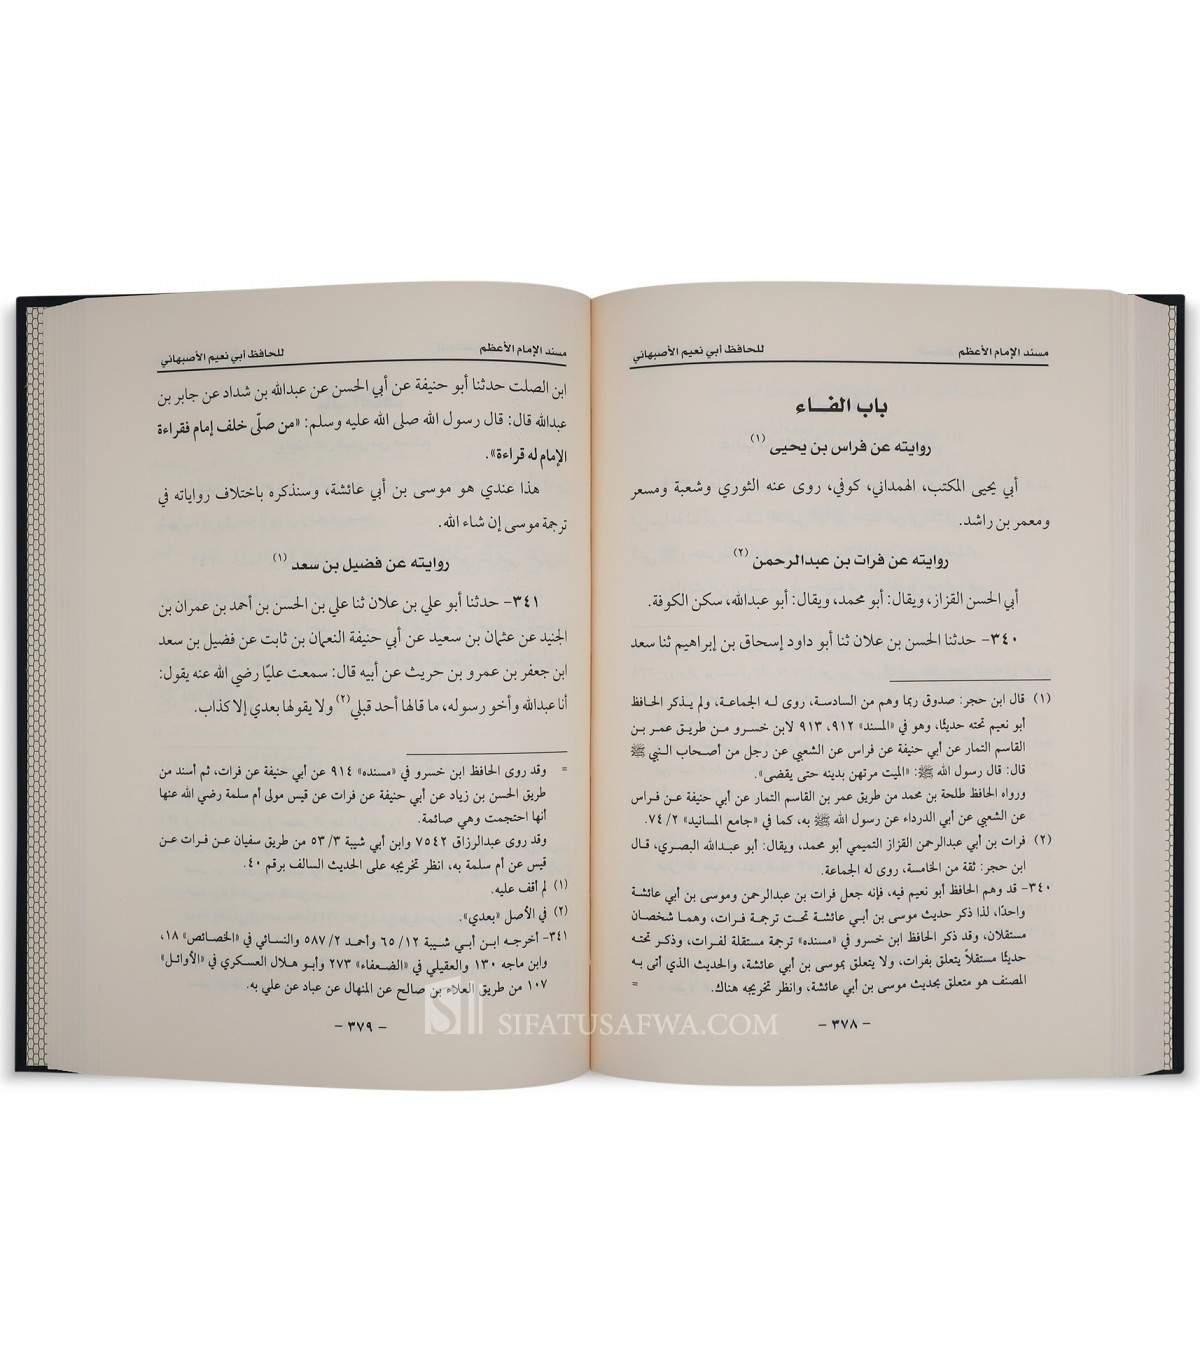 مسند الإمام الأعظم
للحافظ أبي نعيم الأصبهاني
باب الفـــاء
روايته عن فراس بن يحيى (١)
أبي يحيى المكتب، الهمداني، كوفي، روى عنه الثوري وشعبة ومسعر
ومعمر بن راشد.
روايته عن فرات بن عبدالرحمن (٢)
أبي الحسن القزاز، ويقال: أبو محمد، ويقال: أبو عبدالله، سكن الكوفة.
٣٤٠- حدثنا الحسن بن علان ثنا أبو داود إسحاق بن إبراهيم ثنا سعد
(١) قال ابن حجر: صدوق ربما وهم من السادسة، روى له الجماعة، ولم يذكر الحافظ
أبو نعيم تحته حديثًا، وهو في «المسند» ٩١٢، ٩١٣ لابن خسرو من طريق عمر بن
القاسم التمار عن أبي حنيفة عن فراس عن الشعبي عن رجل من أصحاب النبي ﷺ
قال: قال رسول الله ﷺ: «الميت مرتهن بدينه حتى يقضى».
ورواه الحافظ طلحة بن محمد من طريق عمر بن القاسم التمار عن أبي حنيفة عن فراس
عن الشعبي عن أبي الدرداء عن رسول الله ﷺ به، كما في «جامع المسانيد» ٢/ ٧٤.
(٢) فرات بن أبي عبدالرحمن القزاز التميمي أبو محمد، ويقال: أبو عبدالله البصري، قال
ابن حجر: ثقة من الخامسة، روى له الجماعة.
٣٤٠- قد وهم الحافظ أبو نعيم فيه، فإنه جعل فرات بن عبدالرحمن وموسى بن أبي عائشة
واحدًا، لذا ذكر حديث موسى بن أبي عائشة تحت ترجمة فرات، وهما شخصان
مستقلان، وقد ذكر الحافظ ابن خسرو في «مسنده» ترجمة مستقلة لفرات، وذكر تحته
حديثًا مستقلاً يتعلق بفرات، ولا يتعلق بموسى بن أبي عائشة، والحديث الذي أتى به
المصنف هو متعلق بحديث موسى بن أبي عائشة، وانظر تخريجه هناك. =
– ٣٧٨ –
مسند الإمام الأعظم
للحافظ أبي نعيم الأصبهاني
ابن الصلت حدثنا أبو حنيفة عن أبي الحسن عن عبدالله بن شداد عن جابر بن
عبدالله قال: قال رسول الله صلى الله عليه وسلم: «من صلّى خلف إمام فقراءة
الإمام له قراءة».
هذا عندي هو موسى بن أبي عائشة، وسنذكره باختلاف رواياته في
ترجمة موسى إن شاء الله.
روايته عن فضيل بن سعد (١)
٣٤١- حدثنا أبو علي بن علان ثنا علي بن الحسن بن أحمد بن عمران بن
الجنيد عن عثمان بن سعيد عن أبي حنيفة النعمان بن ثابت عن فضيل بن سعد
ابن جعفر بن عمرو بن حريث عن أبيه قال: سمعت عليًا رضي الله عنه يقول:
أنا عبدالله وأخو رسوله، ما قالها أحد قبلي(٢) ولا يقولها بعدي إلا كذاب.
= وقد روى الحافظ ابن خسرو في «مسنده» ٩١٤ عن أبي حنيفة عن فرات، ثم أسند من
طريق الحسن بن زياد عن أبي حنيفة عن فرات عن قيس مولى أم سلمة رضي الله عنها
أنها احتجمت وهي صائمة.
وقد روى عبدالرزاق ٧٥٤٢ وابن أبي شيبة ٣/ ٥٣ من طريق سفيان عن فرات عن
قيس عن أم سلمة به، انظر تخريجه على الحديث السالف برقم ٤٠.
(١) لم أقف عليه.
(٢) في الأصل «بعدي».
٣٤١- أخرجه ابن أبي شيبة ١٢/ ٦٥ وأحمد ٢/ ٥٨٧ والنسائي في «الخصائص» ١٨،
وابن ماجه ١٣٠ والعقيلي في «الضعفاء» ٢٧٣ وأبو هلال العسكري في «الأوائل»
١٠٧ من طريق العلاء بن صالح عن المنهال عن عباد عن علي به.
– ٣٧٩ –
SIFATUSAFWA.COM